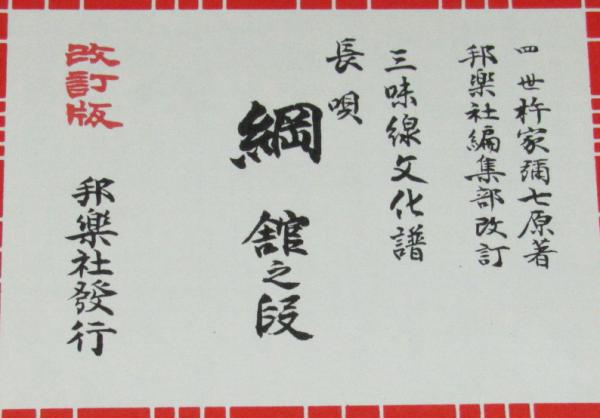 四世杵家彌七原著
邦樂社編集部改訂
三味線文化譜
長唄
綱舘之段
改訂版
邦樂社發行